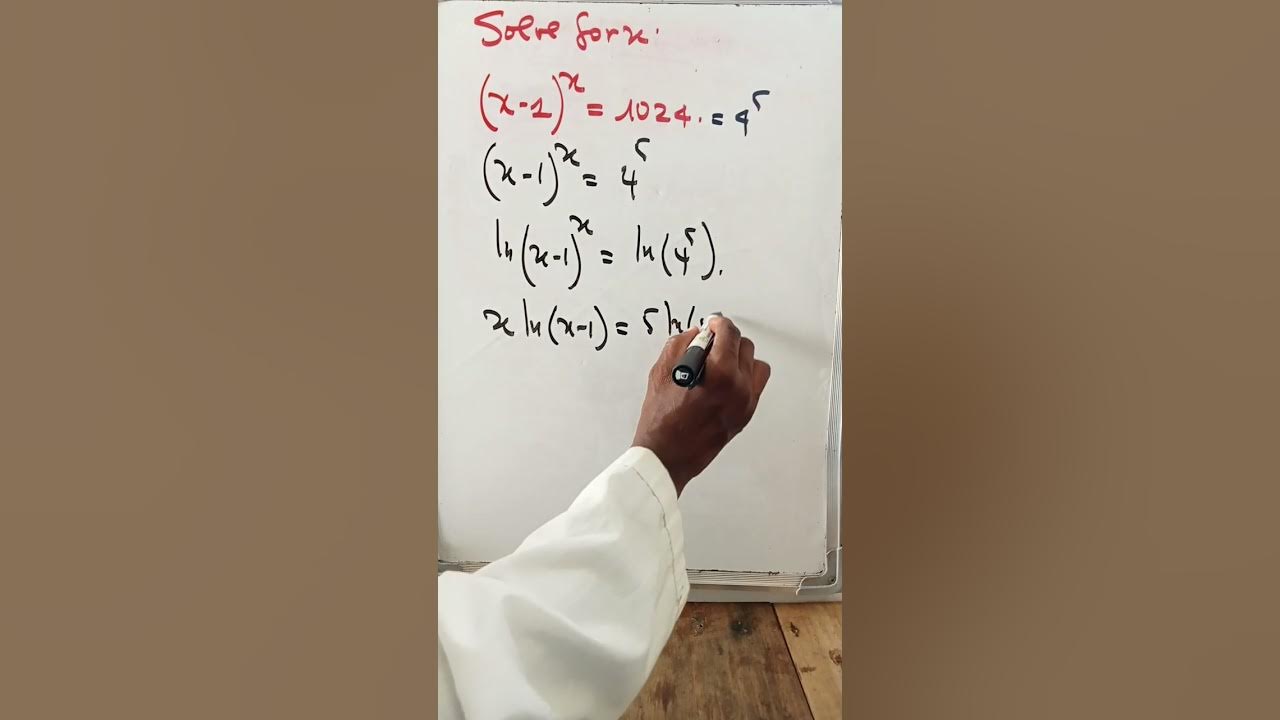 Solve for x.
(x-1)^x = 1024. = 4^5
(x-1)^x = 4^5
ln(x-1)^x = ln(4^5).
x ln(x-1) = 5 ln(